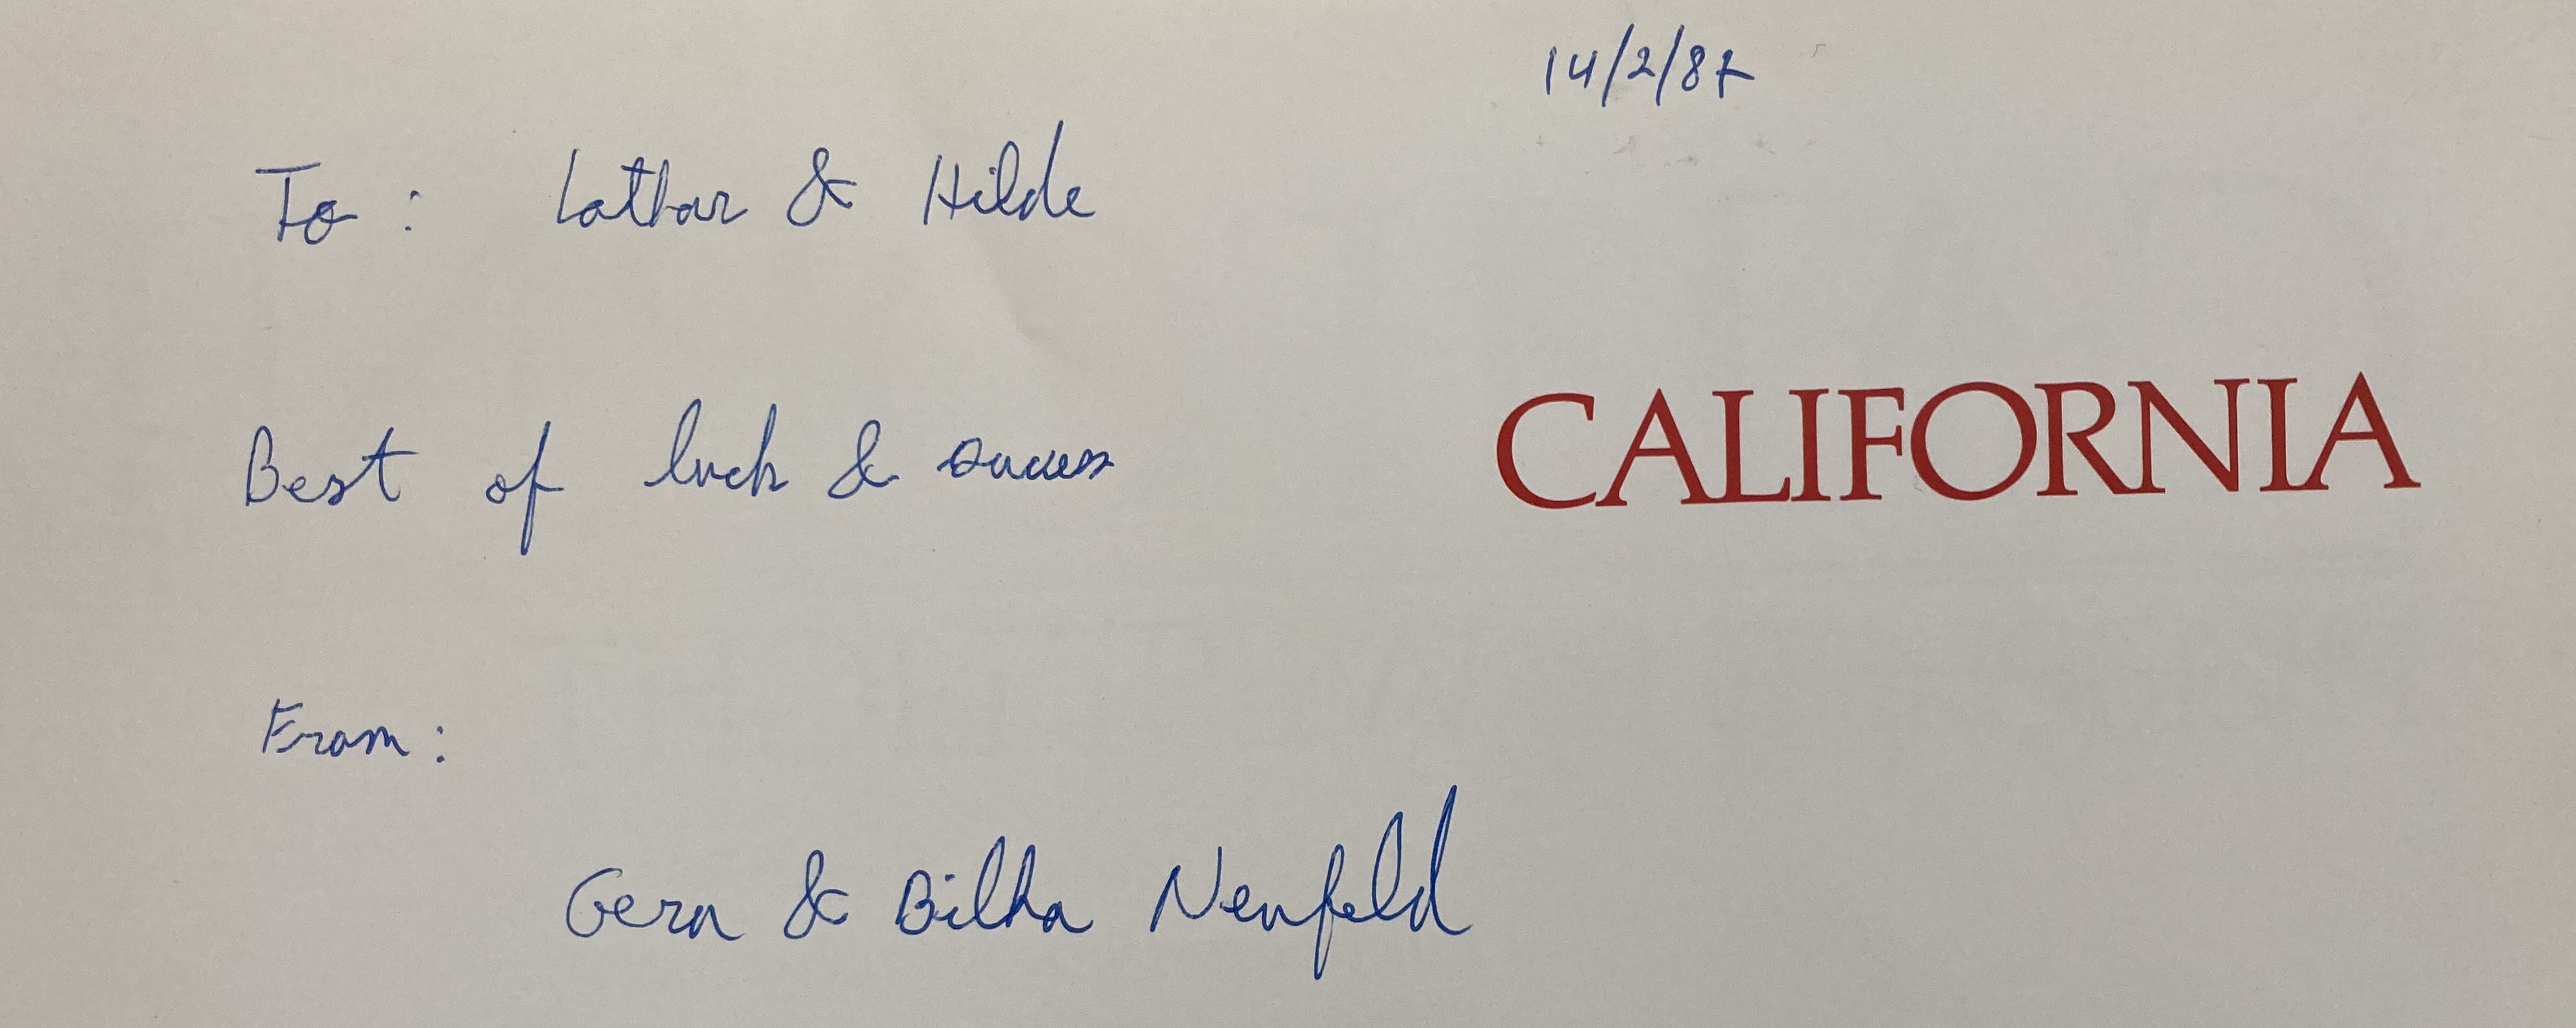 14/2/87
To: Lothar & Hilde
Best of luck & success
CALIFORNIA
From:
Gera & Bilha Neufeld